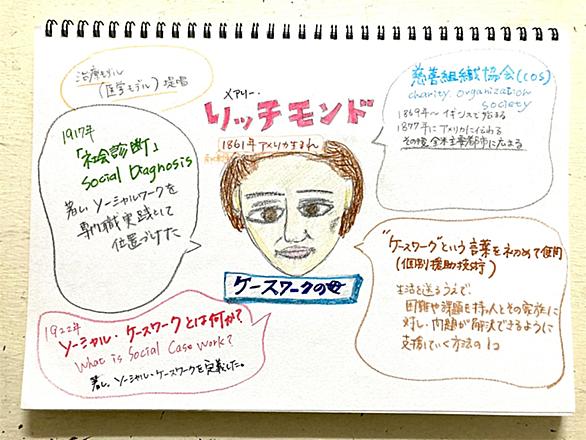 治療モデル
(医学モデル) 提唱
メアリー・
リッチモンド
1861年アメリカ生まれ
慈善組織協会(COS)
charity organization
society
1869年〜 イギリスで始まる
1877年にアメリカに伝わる
その後 全米主要都市に広まる
1917年
「社会診断」
Social Diagnosis
著し ソーシャルワークを
専門職実践として
位置づけた
ケースワークの母
"ケースワーク"という言葉を初めて使用
(個別援助技術)
生活を送るうえで
困難や課題を持つ人とその家族に
対し、問題が解決できるように
支援していく方法の1つ
1922年
ソーシャル・ケースワークとは何か?
What is Social Case Work?
著し、ソーシャル・ケースワークを定義した。